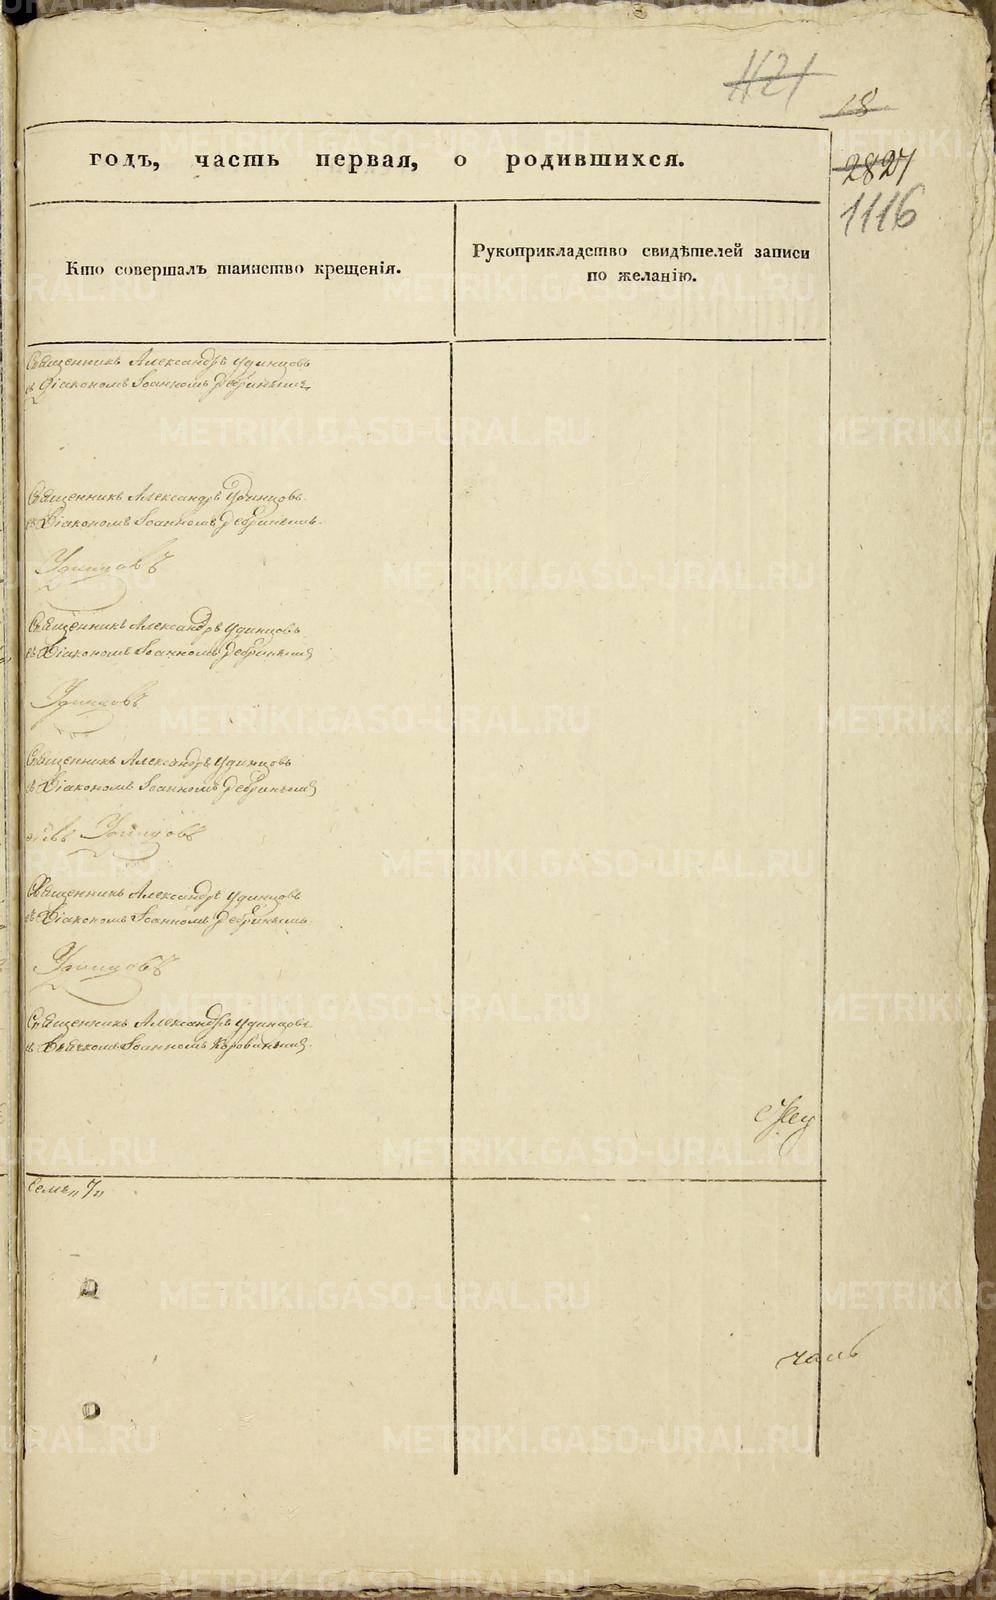 1121
18
годъ, часть первая, о родившихся.
2827
1116
Кто совершалъ таинство крещенія.
Рукоприкладство свидѣтелей записи
по желанію.
Священникъ Александръ Удинцовъ
съ Діакономъ Іоанномъ
Священникъ Александръ Удинцовъ
съ Діакономъ Іоанномъ
Удинцовъ
Священникъ Александръ Удинцовъ
съ Діакономъ Іоанномъ
Удинцовъ
Священникъ Александръ Удинцовъ
съ Діакономъ Іоанномъ
Удинцовъ
Священникъ Александръ Удинцовъ
съ Діакономъ Іоанномъ
Удинцовъ
Священникъ Александръ Удинцовъ
съ Іоанномъ
семь „7„
METRIKI.GASO-URAL.RU